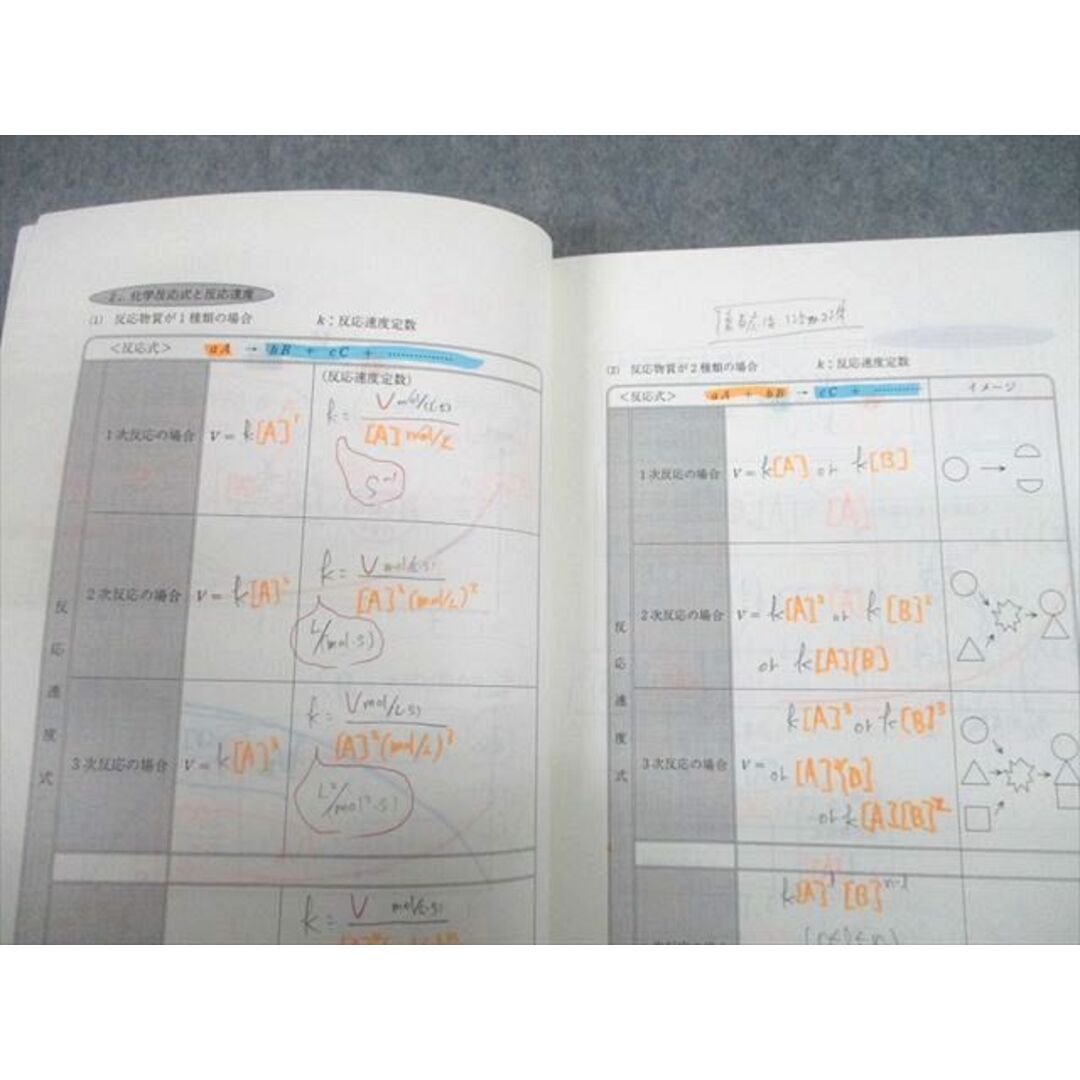 2. 化学反応式と反応速度
(1) 反応物質が1種類の場合 k:反応速度定数
<反応式> aA → bB + cC + …………
(反応速度定数)
1次反応の場合 v = k[A]¹ k = V mol/(L·s) / [A] mol/L
s⁻¹
2次反応の場合 v = k[A]² k = V mol/(L·s) / [A]²(mol/L)²
L/(mol·s)
3次反応の場合 v = k[A]³ k = V mol/(L·s) / [A]³(mol/L)³
L²/(mol²·s)
k = V mol/(L·s)
反応速度式
(2) 反応物質が2種類の場合 k:反応速度定数
<反応式> aA + bB → cC + ………… イメージ
1次反応の場合 v = k[A] or k[B]
2次反応の場合 v = k[A]² or k[B]²
or k[A][B]
k[A]³ or k[B]³
3次反応の場合 v = or [A]²[B]
or k[A][B]²
反応速度式